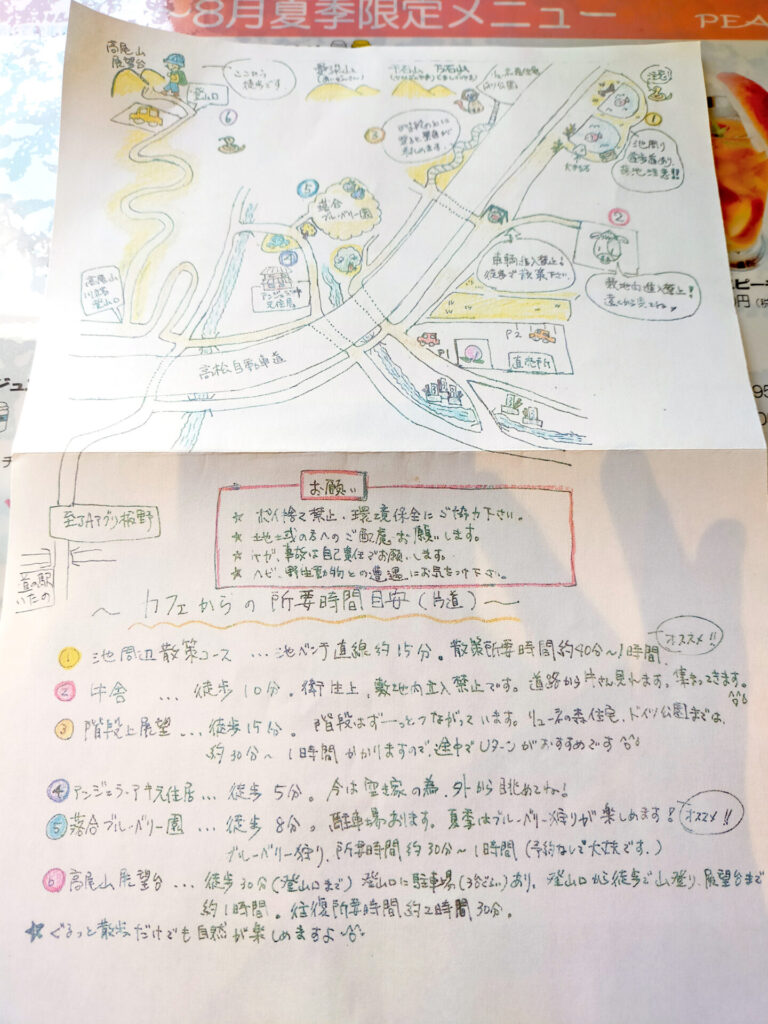 ~8月夏季限定メニュー
PEA
高尾山
展望台
ここから
徒歩です
登山口
6
3
階段の上に
登ると景色が
楽しめます。
注意
1
池周り
遊歩道あり
落池注意!!
2
車両進入禁止!
徒歩で散策下さい。
敷地内進入禁止!
5
落合
ブルーベリー園
4
アンジェラ・アキ
元住居
高尾山
川端
登山口
高松自動車道
P1
P2
直売所
至JAアグリ板野
道の駅
いたの
お願い
☆ ポイ捨て禁止・環境保全にご協力下さい。
☆ 地域の方へのご配慮お願いします。
☆ ケガ、事故は自己責任でお願いします。
☆ ヘビ、野生動物との遭遇にお気をつけ下さい。
~ カフェからの所要時間目安(片道) ~
1 池周辺散策コース …池ベンチ直線約15分。散策所要時間約40分~1時間 オススメ!!
2 牛舎 … 徒歩10分。衛生上、敷地内立入禁止です。道路から牛さん見れます。集まってきます。
3 階段上展望 …徒歩15分。階段はずーっとつながっています。リューネの森住宅、ドイツ公園までは、
約30分~1時間かかりますので、途中でUターンがおすすめです
4 アンジェラ・アキ元住居… 徒歩5分。今は空き家の為、外から眺めてね!
5 落合ブルーベリー園… 徒歩8分。駐車場あります。夏季はブルーベリー狩りが楽しめます! オススメ!!
ブルーベリー狩り、所要時間約30分~1時間(予約なしで大丈夫です。)
6 高尾山展望台 …徒歩30分(登山口まで)登山口に駐車場(3台ぐらい)あり。登山口から徒歩で山登り、展望台まで
約1時間。往復所要時間約2時間30分。
☆ ぐるっと散歩だけでも自然が楽しめますよ